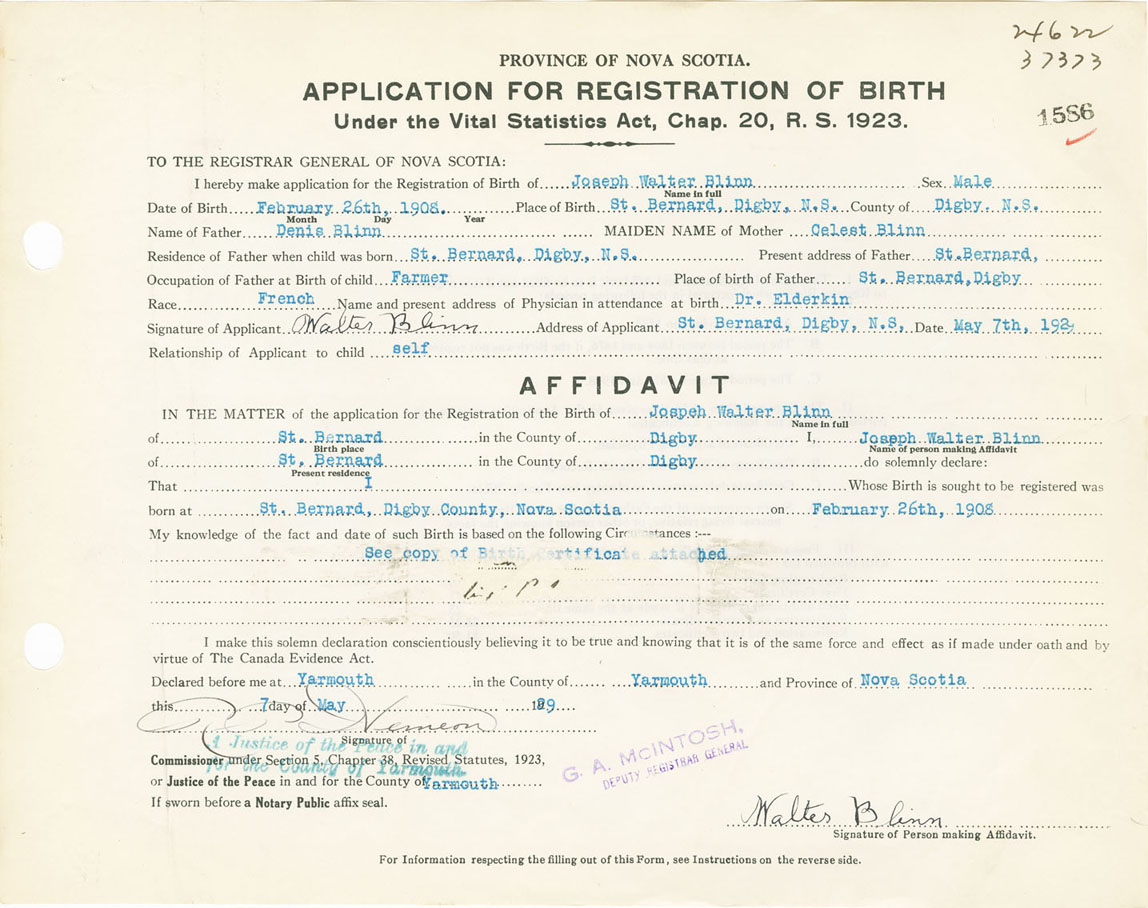 24622
37373
PROVINCE OF NOVA SCOTIA.
APPLICATION FOR REGISTRATION OF BIRTH
Under the Vital Statistics Act, Chap. 20, R. S. 1923.
1586
TO THE REGISTRAR GENERAL OF NOVA SCOTIA:
I hereby make application for the Registration of Birth of Joseph Walter Blinn Sex Male
Name in full
Date of Birth February 26th, 1908. Place of Birth St. Bernard, Digby, N.S. County of Digby. N.S.
Month Day Year
Name of Father Denis Blinn MAIDEN NAME of Mother Celest Blinn
Residence of Father when child was born St. Bernard, Digby, N.S. Present address of Father St.Bernard,
Occupation of Father at Birth of child Farmer Place of birth of Father St. Bernard,Digby
Race French Name and present address of Physician in attendance at birth Dr. Elderkin
Signature of Applicant Walter Blinn Address of Applicant St. Bernard, Digby, N.S, Date May 7th, 1929
Relationship of Applicant to child self
AFFIDAVIT
IN THE MATTER of the application for the Registration of the Birth of Jospeh Walter Blinn
Name in full
of St. Bernard in the County of Digby I, Joseph Walter Blinn
Birth place Name of person making Affidavit
of St. Bernard in the County of Digby do solemnly declare:
Present residence
That I Whose Birth is sought to be registered was
born at St. Bernard, Digby County, Nova Scotia on February 26th, 1908
My knowledge of the fact and date of such Birth is based on the following Circumstances :---
See copy of Birth Certificate attached
I make this solemn declaration conscientiously believing it to be true and knowing that it is of the same force and effect as if made under oath and by
virtue of The Canada Evidence Act.
Declared before me at Yarmouth in the County of Yarmouth and Province of Nova Scotia
this 7 day of May 29
Signature of
A Justice of the Peace in and
for the County of Yarmouth.
Commissioner under Section 5, Chapter 38, Revised Statutes, 1923,
or Justice of the Peace in and for the County of Yarmouth
If sworn before a Notary Public affix seal.
G. A. McINTOSH,
DEPUTY REGISTRAR GENERAL
Walter Blinn
Signature of Person making Affidavit.
For Information respecting the filling out of this Form, see Instructions on the reverse side.